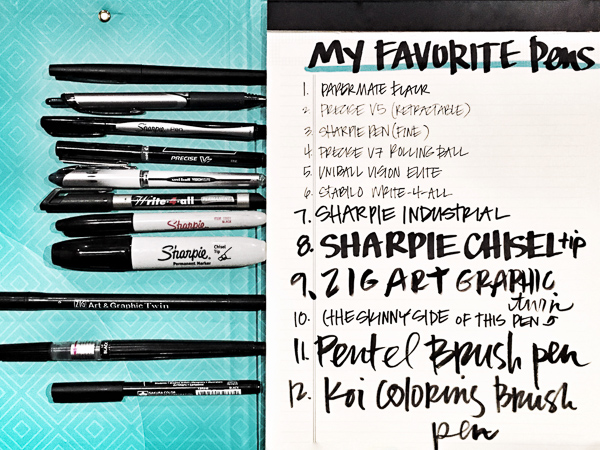 MY FAVORITE Pens
1. PAPERMATE FLAIR
2. PRECISE V5 (RETRACTABLE)
3. SHARPIE PEN (FINE)
4. PRECISE V7 ROLLING BALL
5. UNIBALL VISION ELITE
6. STABILO WRITE-4-ALL
7. SHARPIE INDUSTRIAL
8. SHARPIE CHISEL tip
9. ZIG ART GRAPHIC
twin
10. (THE SKINNY SIDE OF THIS PEN
11. Pentel Brush pen
12. Koi Coloring Brush
pen
Sharpie PEN
PRECISE V7
uni-ball
Write-4-all
Sharpie
Sharpie
Chisel Tip
Permanent Marker
Art & Graphic Twin
SAKURA COLOR